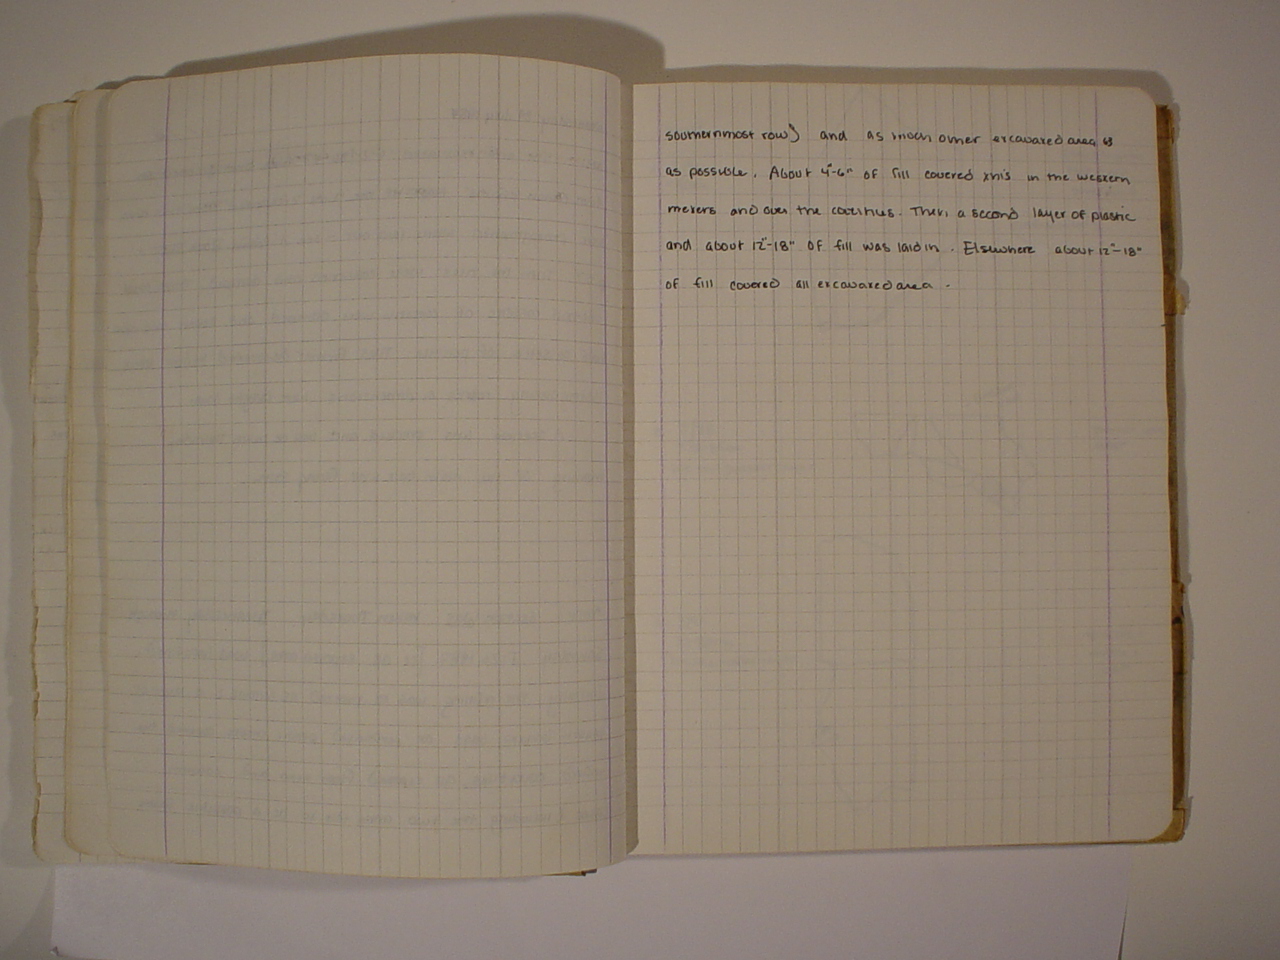 southernmost row) and as much other excavated area as
as possible. About 4"-6" of fill covered this in the western
meters and over the counthus. Then a second layer of plastic
and about 12"-18" of fill was laid in. Elsewhere about 12"-18"
of fill covered all excavated area.